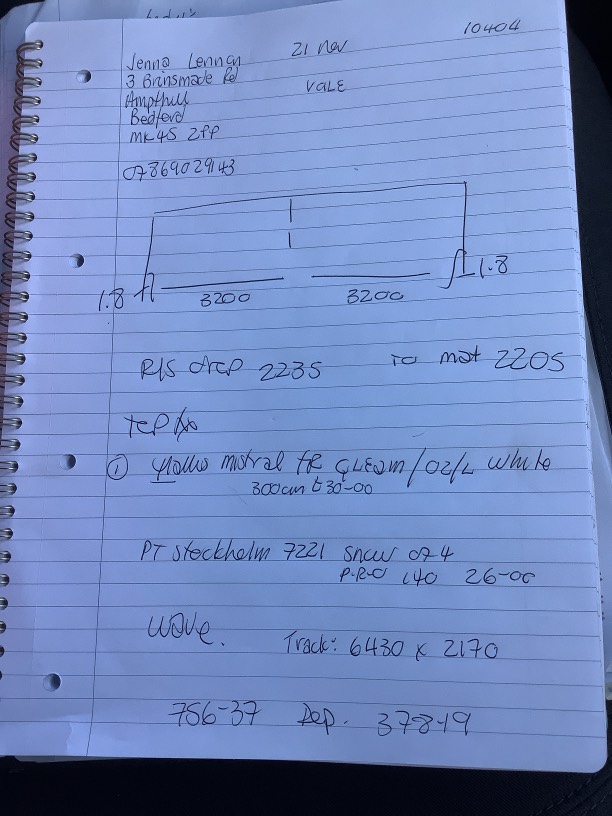 10404
21 Nov
Jenna Lenncy
3 Brinsmade Rd
VALE
Ampthill
Bedford
MK45 2PP
07869029143
1.8
3200
3200
1.8
R/S drop 2235
to mat 2205
Top fix
① mistral FR GLEAM/02/L white
300cm £30-00
PT Stockholm 7221 Snow 07 4
P.R.O 140 26-00
Wave.
Track: 6430 x 2170
756-37 Dep. 378-19